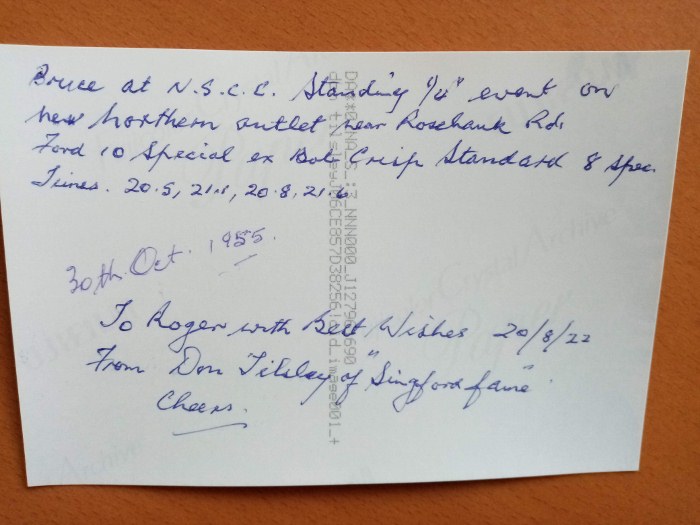 Bruce at N.S.C.C. Standing 1/4" event on
new Northern outlet near Rosebank Rd.
Ford 10 Special ex Bob Crisp Standard 8 Spec.
Times. 20.5, 21.1, 20.8, 21.6
30th Oct. 1955.
To Roger with Best Wishes 20/8/22
From Don Tilsley of "Singford fame"
Cheers.